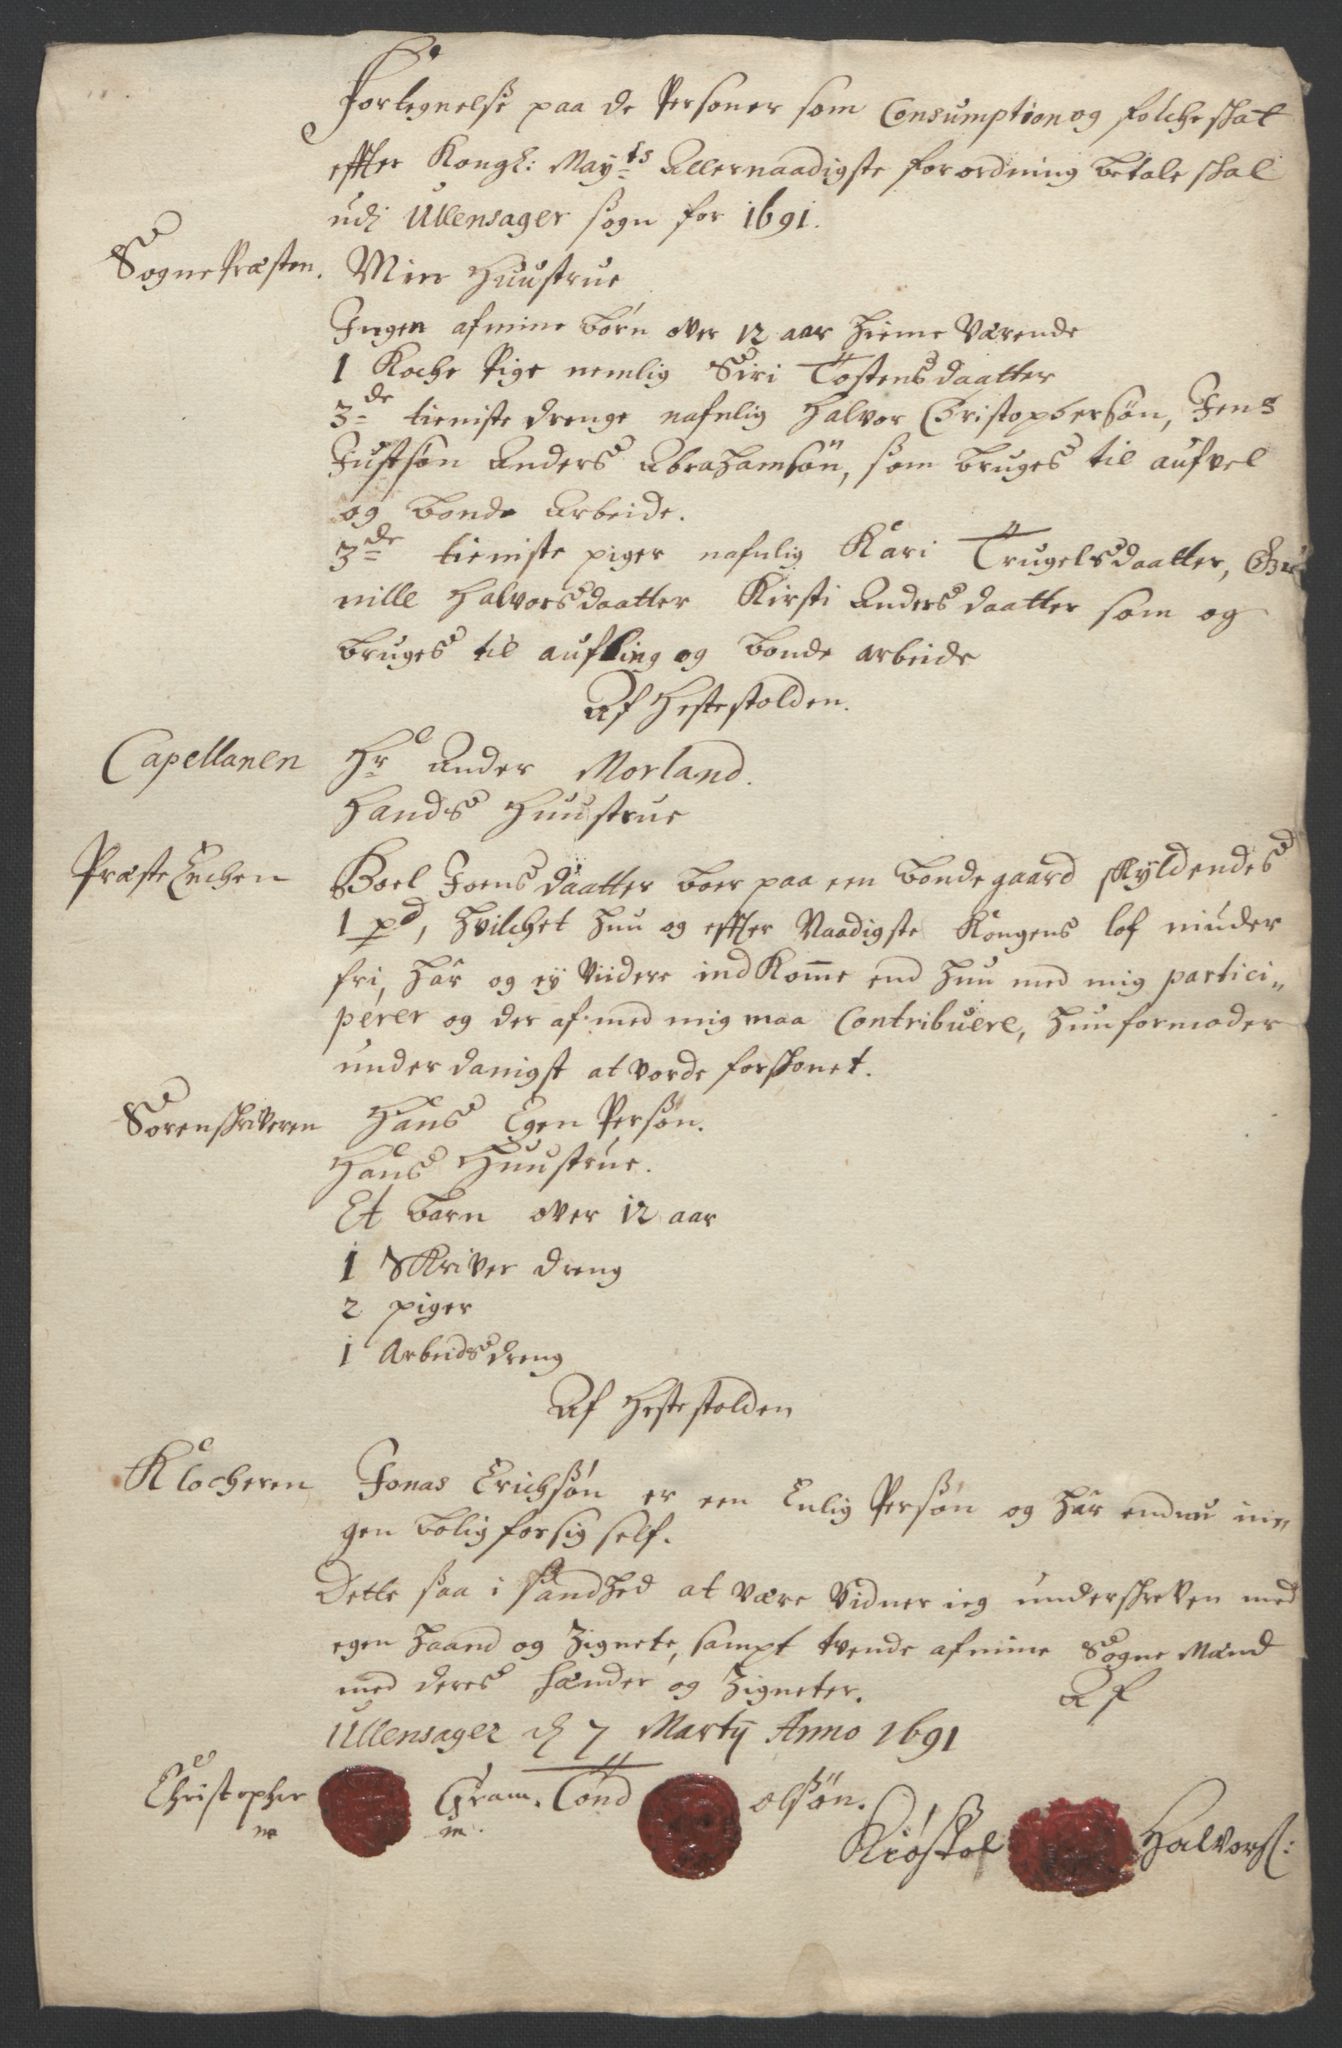 Fortegnelse paa de Personer som Consumption og folche skat
effter Kongl: May:ts Allernaadigste forordning betale skal
udj Ullensager sogn for 1691.
Sogne Præsten. Min Huustrue
Ingen af mine børn over 12 aar hieme værende
1 Koche Pige nemlig Siri Tostensdaatter
3de tieniste drenge nafnlig Halvor Christophersøn, Jens
Justsøn Anders Abrahamsøn, som bruges til aufvel
og bonde Arbeide.
3de tieniste piger nafnlig Kari Trugelsdaatter, Gun
nille Halvorsdaatter Kirsti Andersdaatter som og
bruges til aufling og bonde arbeide
Af Hestestolden.
Capellanen Hr Ander Morland.
Hands Huustrue
Præste Enchen Boel Joensdaatter boer paa een bondegaard skyldendes
1 pd, hvilchet hun og effter Naadigste Kongens lof niuder
fri, har og ey viidere indKomme end hun med mig partici„
perer og der af med mig maa Contribuere, hun formoder
underdanigst at vorde forskonet.
Sorenskriveren Hans Egen Persøn.
Hans Huustrue.
Et barn over 12 aar
1 Skriver dreng
2 piger
1 Arbeidsdreng
Af Hestestolden
Klocheren Jonas Erichsøn er een Enlig Persøn og har endnu in„
gen bolig for sig self.
Dette saa i sandhed at være vidner ieg underskreven med
egen haand og Zignete, sampt tvende af mine Sogne Mænd
med deres hænder og Zigneter. Af
Ullensager dj 7 Martij Anno 1691
Christopher Gram. Tond olsøn.
Kiøstol Halvors: